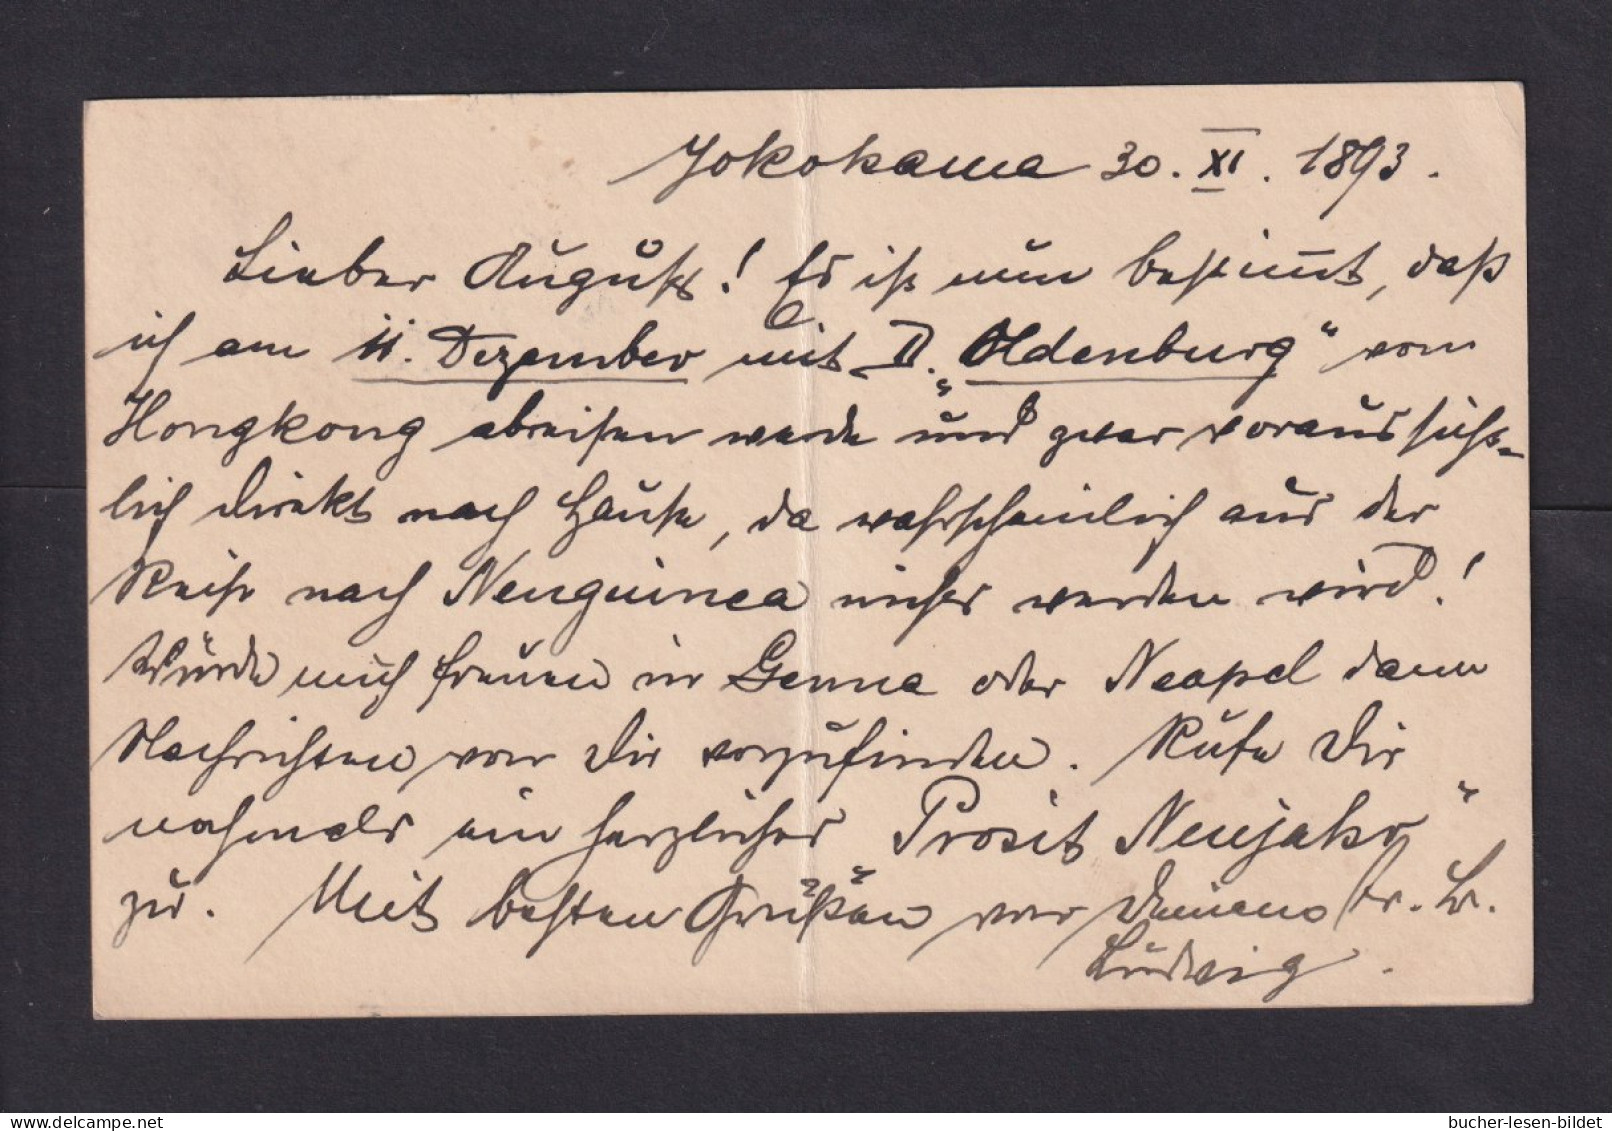 Yokohama 30. XI. 1893.
Lieber August! Es ist nun bestimmt, daß
ich am 11. Dezember mit D. „Oldenburg“ von
Hongkong abreisen werde und zwar voraussicht-
lich direkt nach Hause, da wahrscheinlich aus der
Reise nach Neuguinea nichts werden wird!
Würde mich freuen in Genua oder Neapel dann
Nachrichten von Dir vorzufinden. Rufe Dir
nochmals ein herzliches „Prosit Neujahr“
zu. Mit besten Grüßen von Deinem tr. Br.
Ludwig.
bucher-lesen-bildet